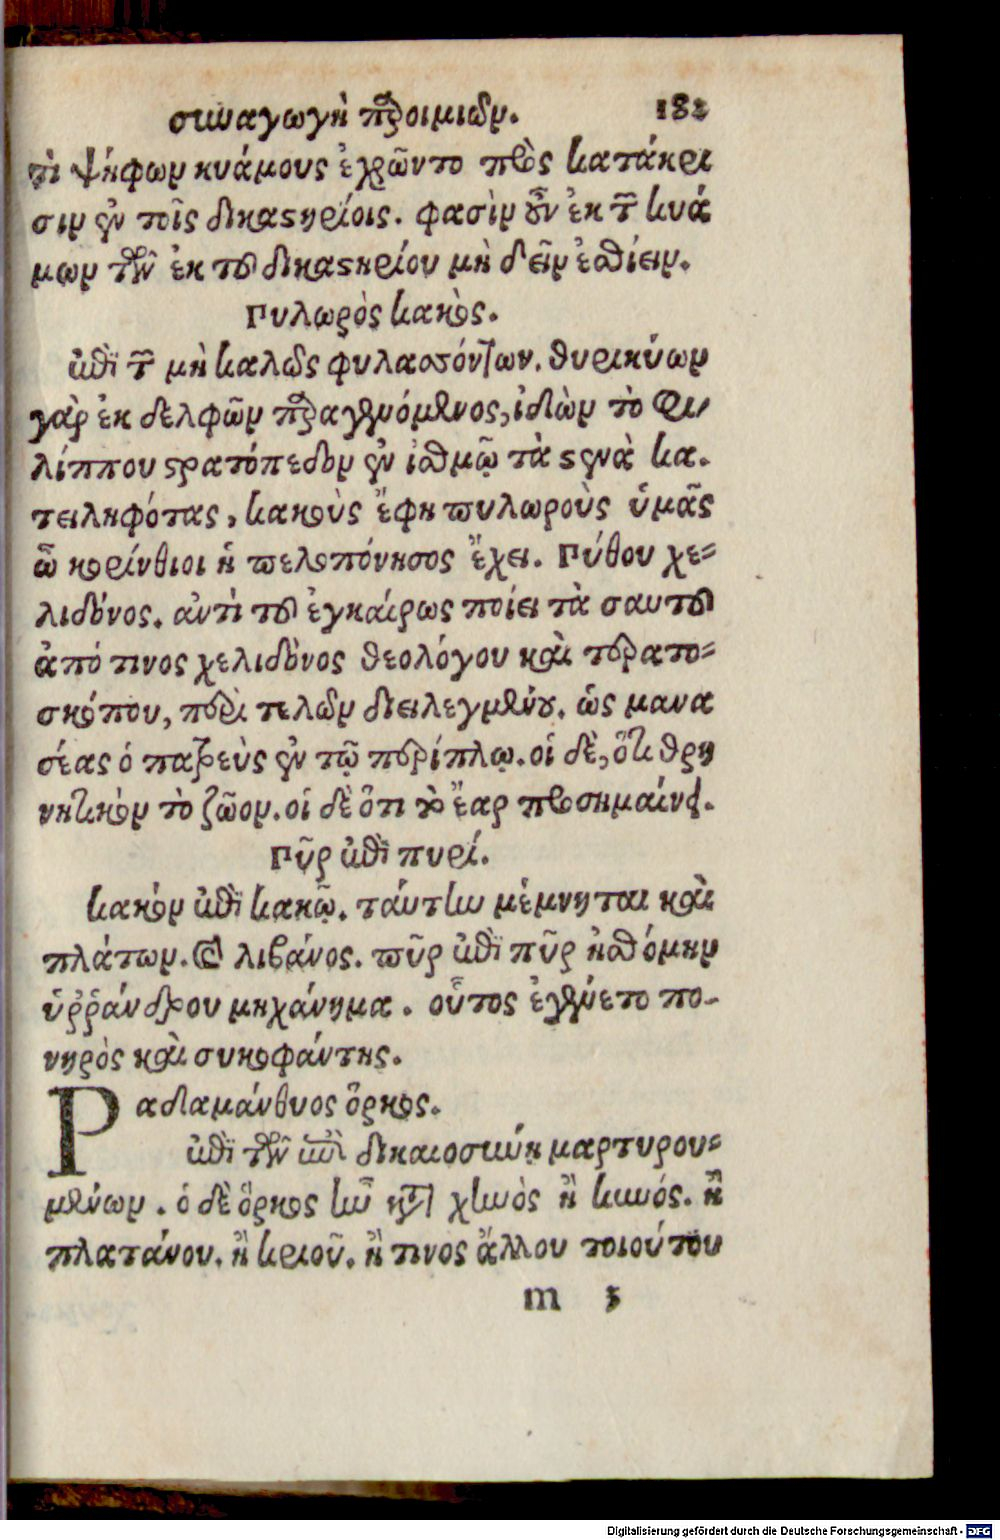 συναγωγὴ παροιμιῶν. 183
τὶ ψήφων κυάμους ἐχρῶντο πρὸς κατάκρι
σιν ἐν τοῖς δικαστηρίοις. φασὶν οὖν ἐκ τῶν κυά
μων τὴν ἐκ τοῦ δικαστηρίου μὴ δεῖν ἐσθίειν.
Πυλωρὸς κακὸς.
ἐπὶ τῶν μὴ καλῶς φυλασσόντων. θυρικύων
γὰρ ἐκ δελφῶν παραγενόμενος, ἰδὼν τὸ Φι
λίππου στρατόπεδον ἐν ἰσθμῷ τὰ στενὰ κα.
τειληφότας, κακοὺς ἔφη πυλωροὺς ὑμᾶς
ὦ κορίνθιοι ἡ πελοπόνησος ἔχει. Πύθου χε-
λιδόνος. ἀντὶ τοῦ ἐγκαίρως ποίει τὰ σαυτοῦ
ἀπό τινος χελιδόνος θεολόγου καὶ τερατο-
σκόπου, περὶ τελῶν διειλεγμένου. ὡς μανα
σέας ὁ παρεὺς ἐν τῷ περίπλῳ. οἱ δὲ, ὅτι θρη
νητικὸν τὸ ζῶον. οἱ δὲ ὅτι τὸ ἔαρ προσημαίνει.
Πῦρ ἐπὶ πυρί.
κακόν ἐπὶ κακῷ. ταύτην μέμνηται καὶ
πλάτων. λιβάνος. πῦρ ἐπὶ πῦρ ἠσθόμην
ὑῤῥάνδρου μηχάνημα. οὗτος ἐγένετο πο-
νηρὸς καὶ συκοφάντης.
Ραδαμάνθυος ὅρκος.
ἐπὶ τῶν ἐπὶ δικαιοσύνῃ μαρτυρου-
μένων. ὁ δὲ ὅρκος ἦν κατὰ χηνὸς ἢ κυνός. ἢ
πλατάνου. ἢ κριοῦ. ἢ τινος ἄλλου τοιούτου
m 3
Digitalisierung gefördert durch die Deutsche Forschungsgemeinschaft - DFG